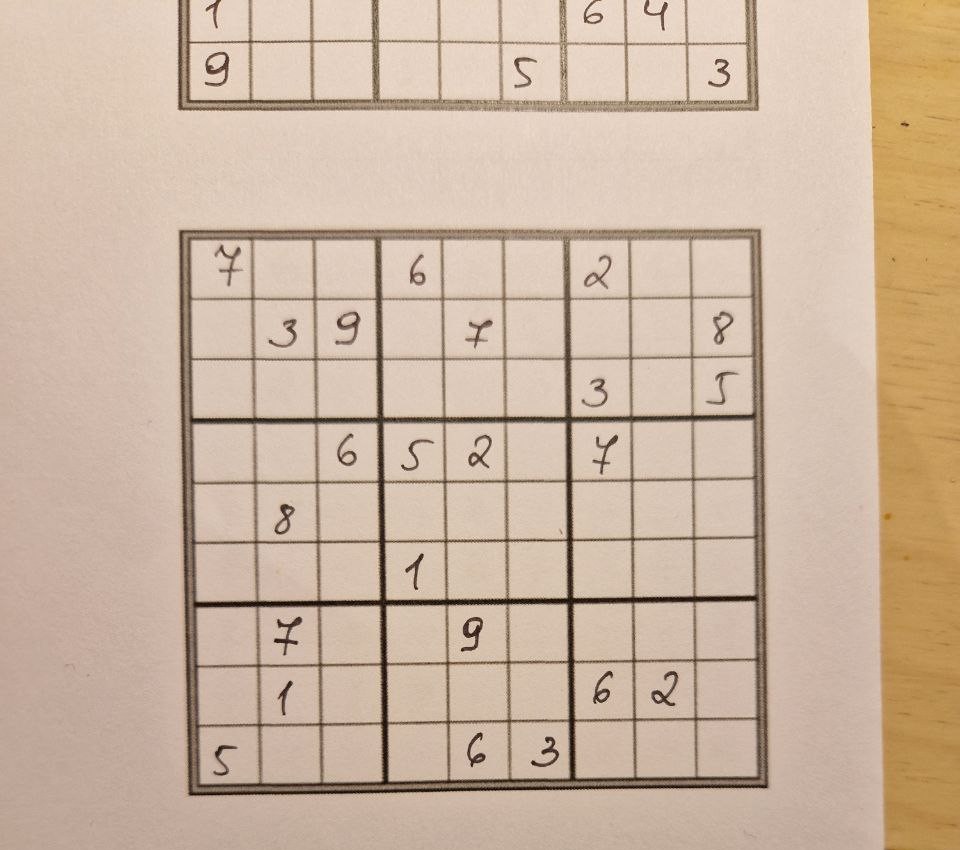 1 6 4
9 5 3
7 6 2
3 9 7 8
3 5
6 5 2 7
8
1
7 9
1 6 2
5 6 3